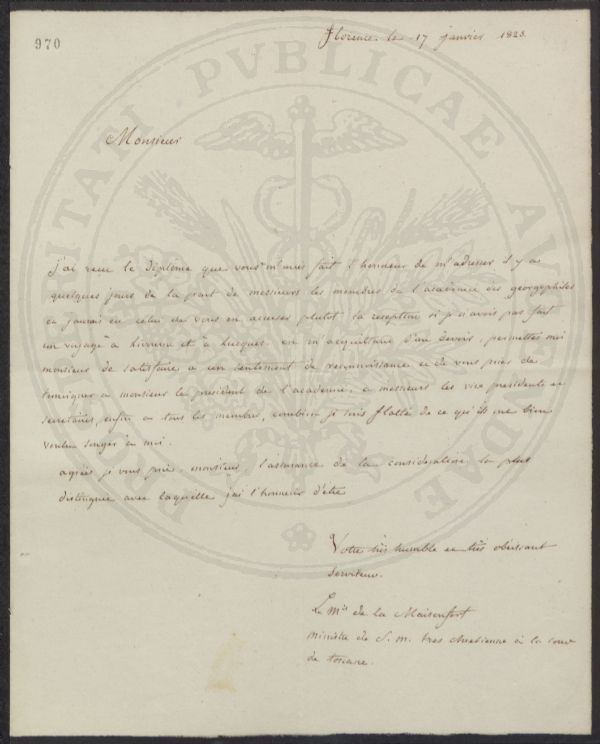 970
Florence le 17 janvier 1823.
Monsieur
j'ai recu le diplôme que vous m'aves fait l'honneur de m'adresser il y a
quelques jours de la part de messieurs les membres de l'académie des georgophiles
et j'aurais eu celui de vous en accuser plutot la reception si je n'avois pas fait
un voyage a Livourne et a Lucques. en m'acquittant d'un devoir, permettes moi
monsieur de satisfaire a un sentiment de reconnoissance et de vous prier de
temoigner a monsieur le president de l'academie, a messieurs les vice presidents et
secretaires, enfin a tous les membres, combien je suis flatté de ce qu'ils ont bien
voulu songer a moi.
agrées je vous prie, monsieur, l'assurance de la consideration la plus
distinguée avec laquelle j'ai l'honneur d'être
Votre très humble et très obeissant
serviteur.
Le Mis de la Maisonfort
ministre de S. m. tres chretienne à la cour
de toscane.
PROSPERITATI PVBLICAE AVGENDAE